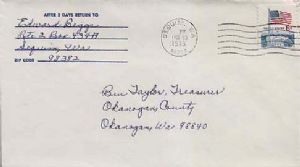 AFTER 5 DAYS RETURN TO
Edward Beggar
Rte 2 Box 454A
Sequim, Wa
ZIP CODE 98382
SEQUIM, WA
PM
1975
Ben Taylor, Treasurer
Okanogan County
Okanogan, Wa 98840